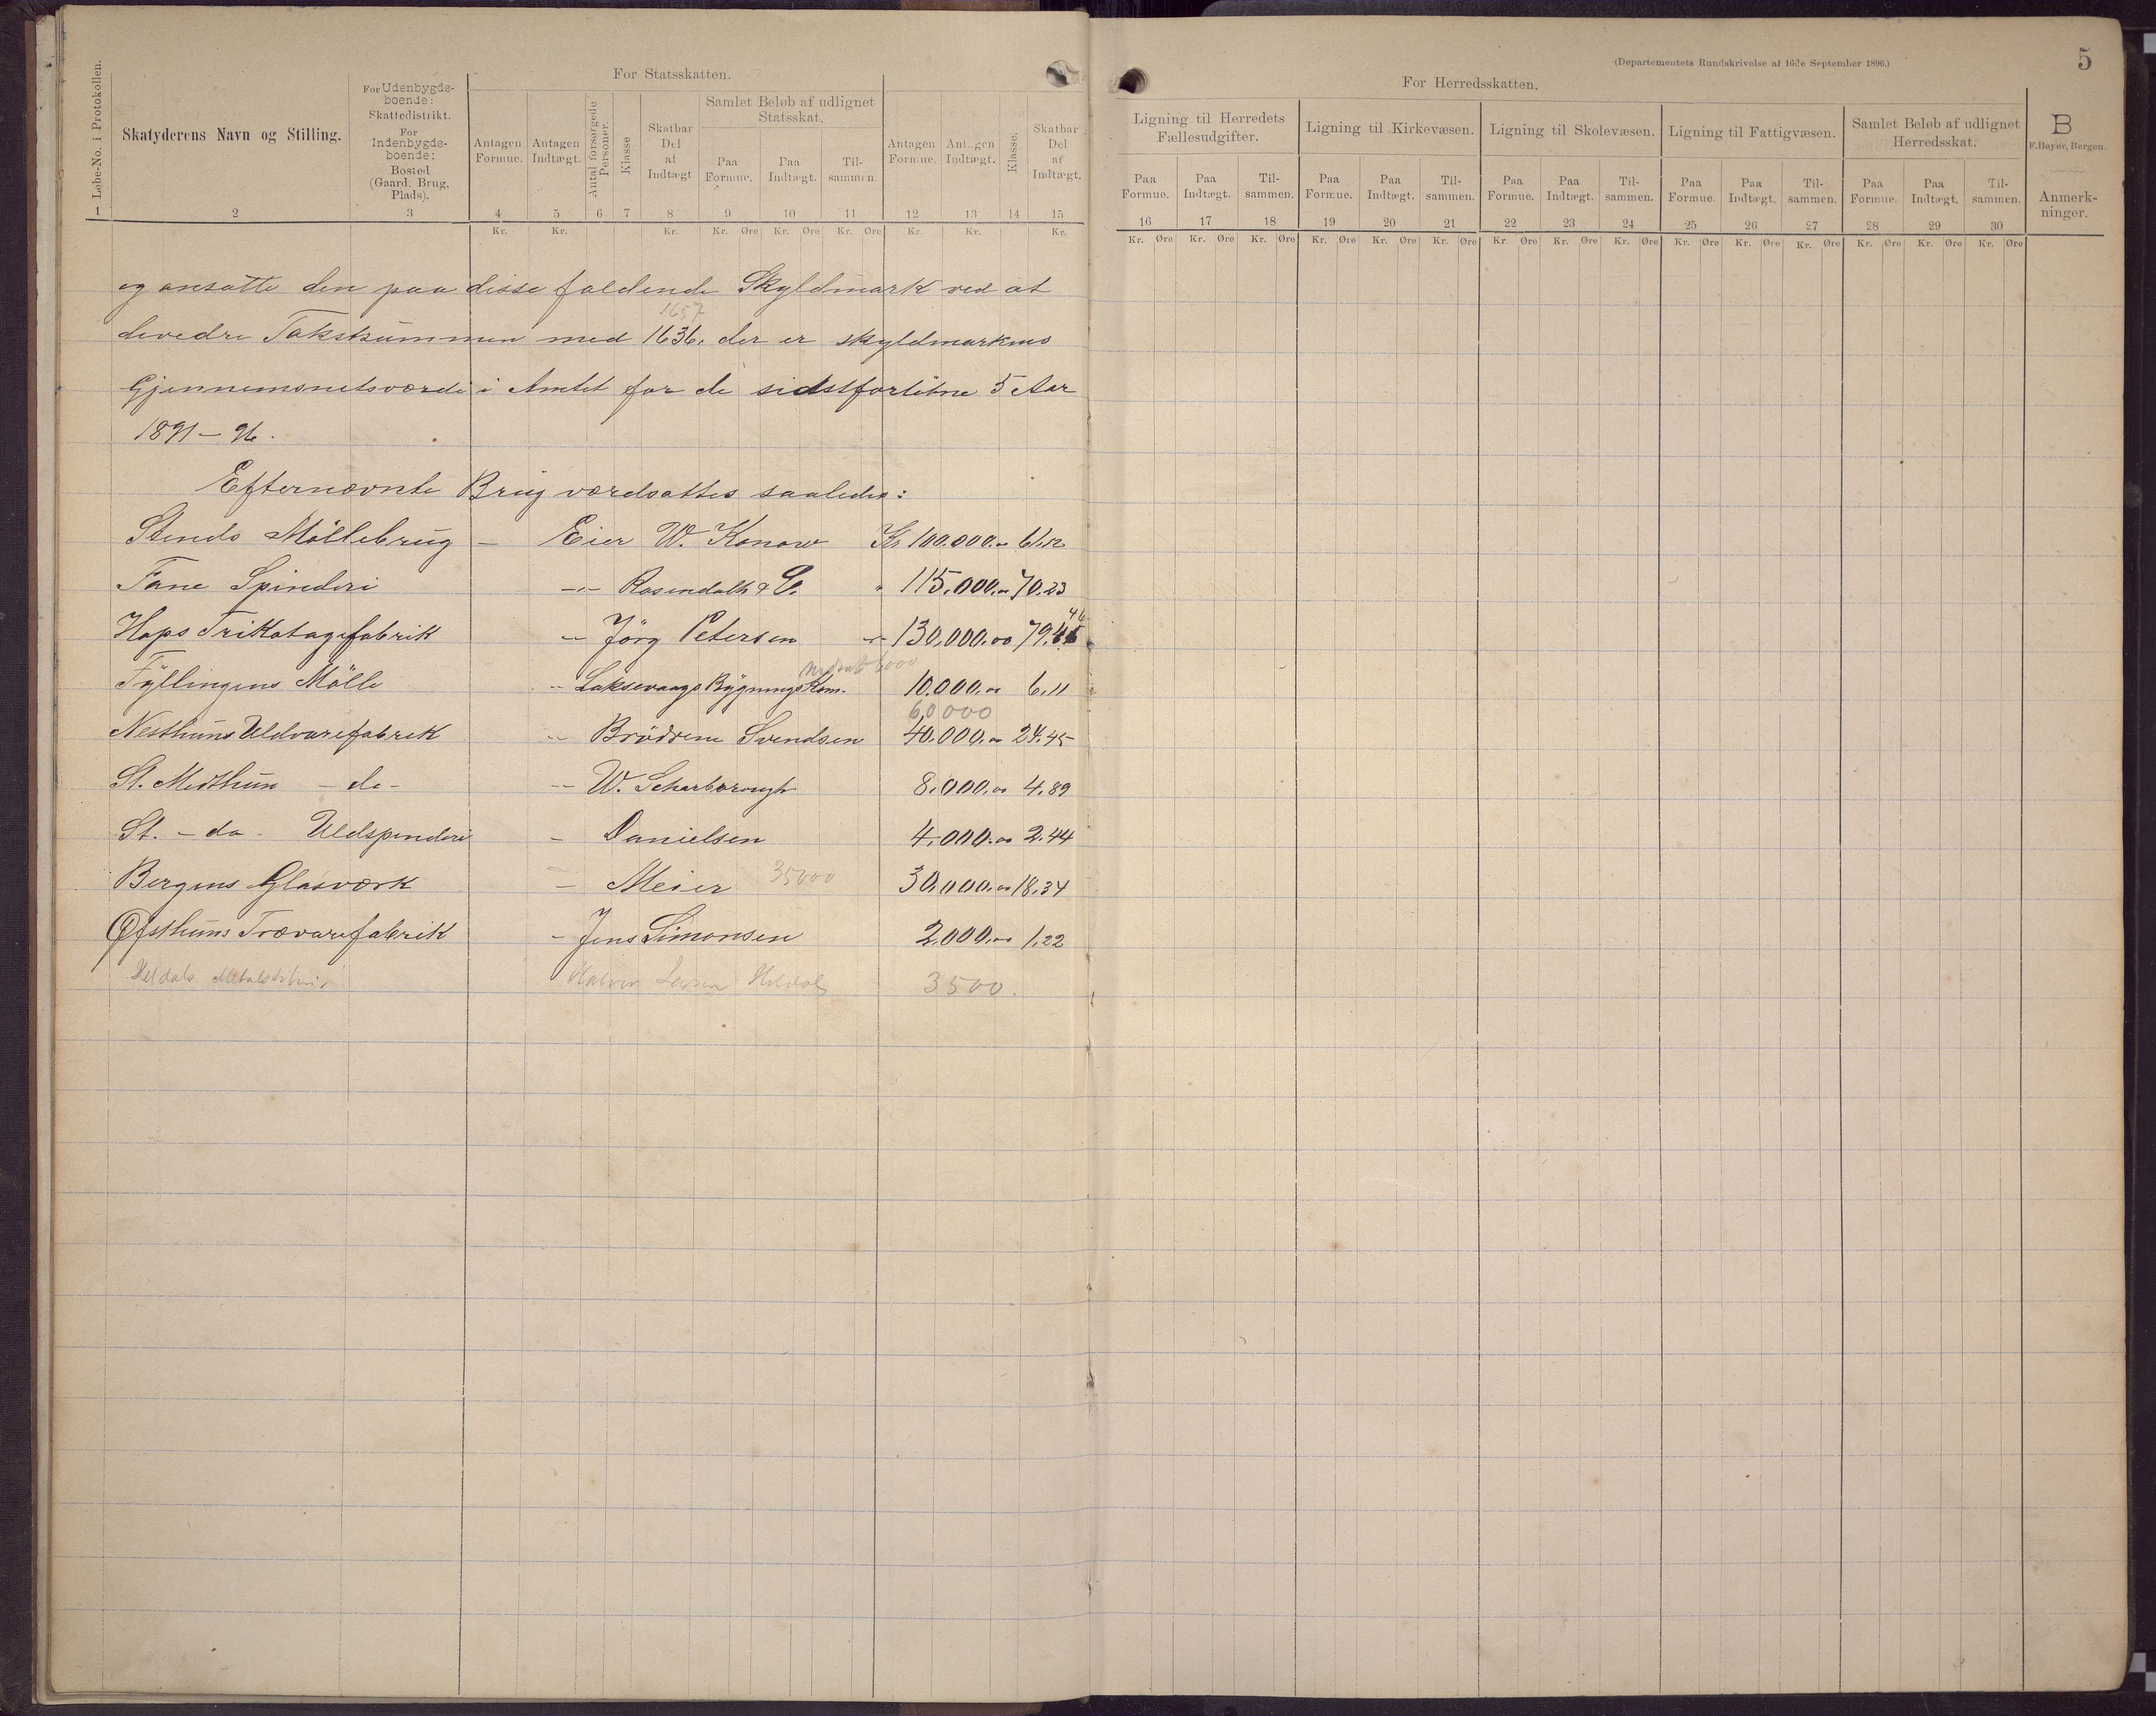 5
(Departementets Rundskrivelse af 16de September 1896.)
For Statsskatten.
For Herredsskatten.
Løbe-No. i Protokollen.
Skatyderens Navn og Stilling.
For Udenbygds-
boende:
Skattedistrikt.
For
Indenbygds-
boende:
Bosted
(Gaard. Brug,
Plads).
Antagen Formue.
Antagen Indtægt.
Antal forsørgede Personer.
Klasse
Skatbar Del af Indtægt
Samlet Beløb af udlignet Statsskat.
Paa Formue. Paa Indtægt. Til-sammen.
Antagen Formue.
Antagen Indtægt.
Klasse.
Skatbar Del af Indtægt.
Ligning til Herredets Fællesudgifter.
Ligning til Kirkevæsen.
Ligning til Skolevæsen.
Ligning til Fattigvæsen.
Samlet Beløb af udlignet Herredsskat.
B
F. Beyer, Bergen.
Paa Formue. Paa Indtægt. Til-sammen. Paa Formue. Paa Indtægt. Til-sammen. Paa Formue. Paa Indtægt. Til-sammen. Paa Formue. Paa Indtægt. Til-sammen. Paa Formue. Paa Indtægt. Til-sammen.
Anmerk-ninger.
1 2 3 4 5 6 7 8 9 10 11 12 13 14 15 16 17 18 19 20 21 22 23 24 25 26 27 28 29 30
Kr. Kr. Kr. Kr. Øre Kr. Øre Kr. Øre Kr. Kr. Kr. Kr. Øre Kr. Øre Kr. Øre Kr. Øre Kr. Øre Kr. Øre Kr. Øre Kr. Øre Kr. Øre Kr. Øre Kr. Øre Kr. Øre Kr. Øre Kr. Øre Kr. Øre
og ansatte den paa disse faldende Skyldmark ved at
1657
devedre Takstsummen med 1636, der er skyldmarkens
Gjennemsnetsværdi i Amtet for de sidstforløbne 5 Aar
1891–96.
Efternævnte Brug værdsattes saaledes:
Stends Möllebrug – Eier W. Konow Kr 100.000.– 61,12
Fane Spinderi –"– Rosendahl & Co. " 115.000.– 70.23
46
Hops Trikotagefabrik –"– Jörg Petersen –"– 130,000.00 79.45
Nedsat 6000
Fyllingens Mölle –"– Laksevaags Bygnings Kom. 10.000.00 6.11
60000
Nesthuns Uldvarefabrik –"– Brödrene Svendsen 40.000.00 24.45
St. Midthun – do – –"– W. Scharborough 8.000.00 4.89
St. – do – Uldspinderi – Danielsen 4.000.00 2.44
Bergens Glasværk – Meier 35000 30,000.00 18.34
Øfsthuns Trævarefabrik – Jens Simonsen 2.000.00 1.22
Heldals Halvor Heldal 3500.